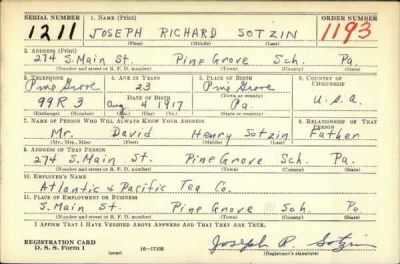 SERIAL NUMBER 1. NAME (Print) ORDER NUMBER
1211 JOSEPH RICHARD SOTZIN 1193
(First) (Middle) (Last)
2. ADDRESS (Print)
274 S. Main St. Pine Grove Sch. Pa.
(Number and street or R. F. D. number) (Town) (County) (State)
3. TELEPHONE 4. AGE IN YEARS 5. PLACE OF BIRTH 6. COUNTRY OF CITIZENSHIP
Pine Grove 23 Pine Grove
DATE OF BIRTH (Town or county)
99R3 Aug 4 1917 Pa. U.S.A.
(Exchange) (Number) (Mo.) (Day) (Yr.) (State or country)
7. NAME OF PERSON WHO WILL ALWAYS KNOW YOUR ADDRESS 8. RELATIONSHIP OF THAT PERSON
Mr. David Henry Sotzin Father
(Mr., Mrs., Miss) (First) (Middle) (Last)
9. ADDRESS OF THAT PERSON
274 S. Main St. Pine Grove Sch. Pa.
(Number and street or R. F. D. number) (Town) (County) (State)
10. EMPLOYER'S NAME
Atlantic & Pacific Tea Co.
11. PLACE OF EMPLOYMENT OR BUSINESS
S. Main St. Pine Grove Sch. Pa.
(Number and street or R. F. D. number) (Town) (County) (State)
I AFFIRM THAT I HAVE VERIFIED ABOVE ANSWERS AND THAT THEY ARE TRUE.
REGISTRATION CARD
D. S. S. Form 1 (over) 16—17105 Joseph R. Sotzin
(Registrant's signature)